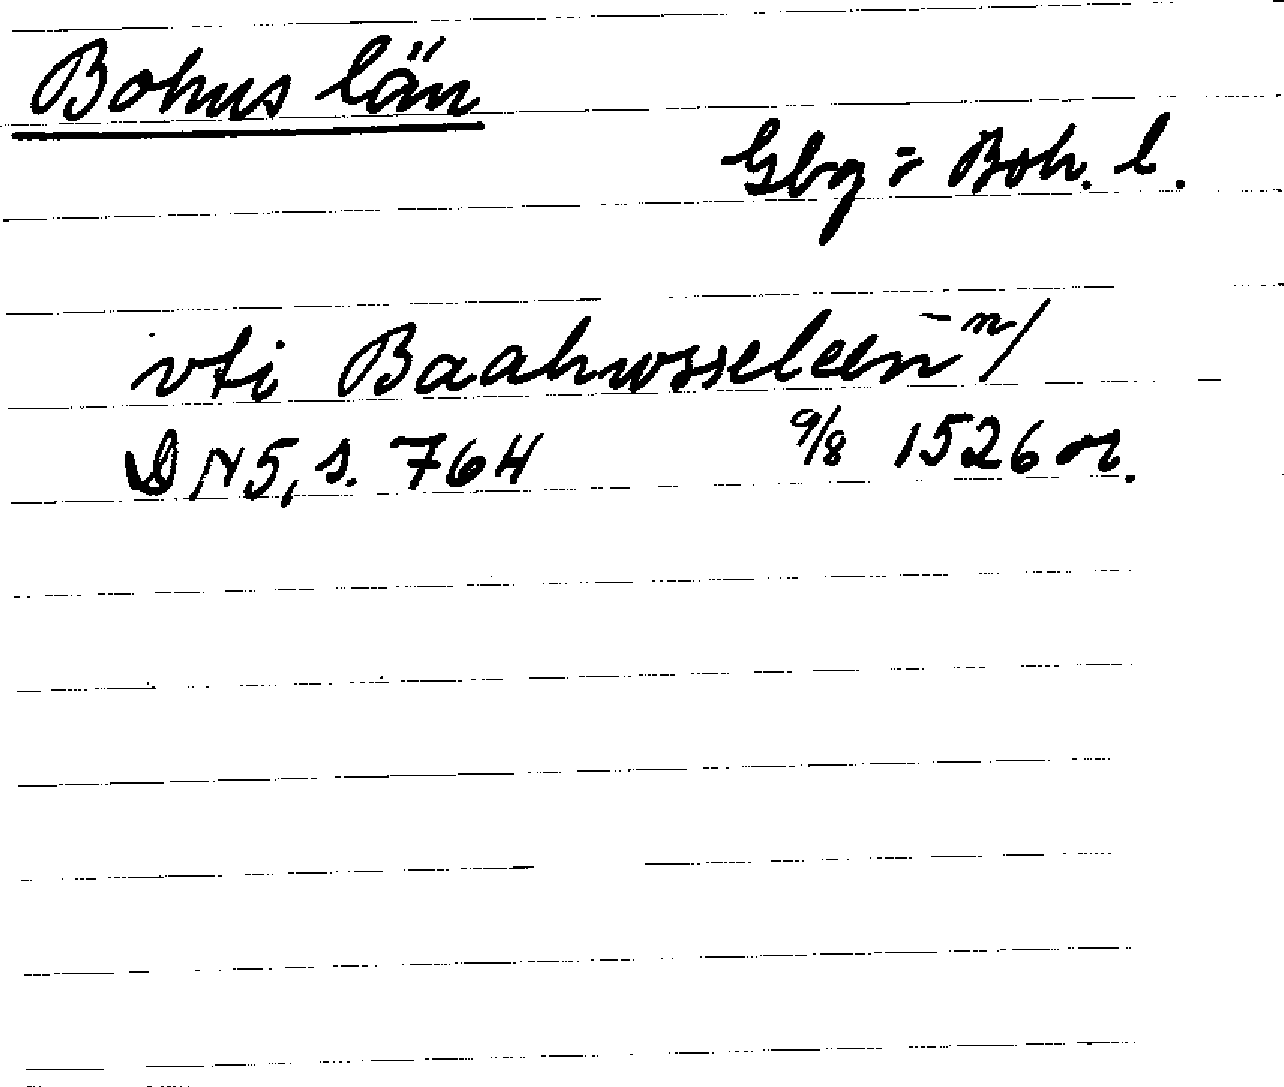 Bohus län
Gbg = Boh. l.
vti Baahwsseleen̄ n/
DN 5, s. 764 9/8 1526 or.